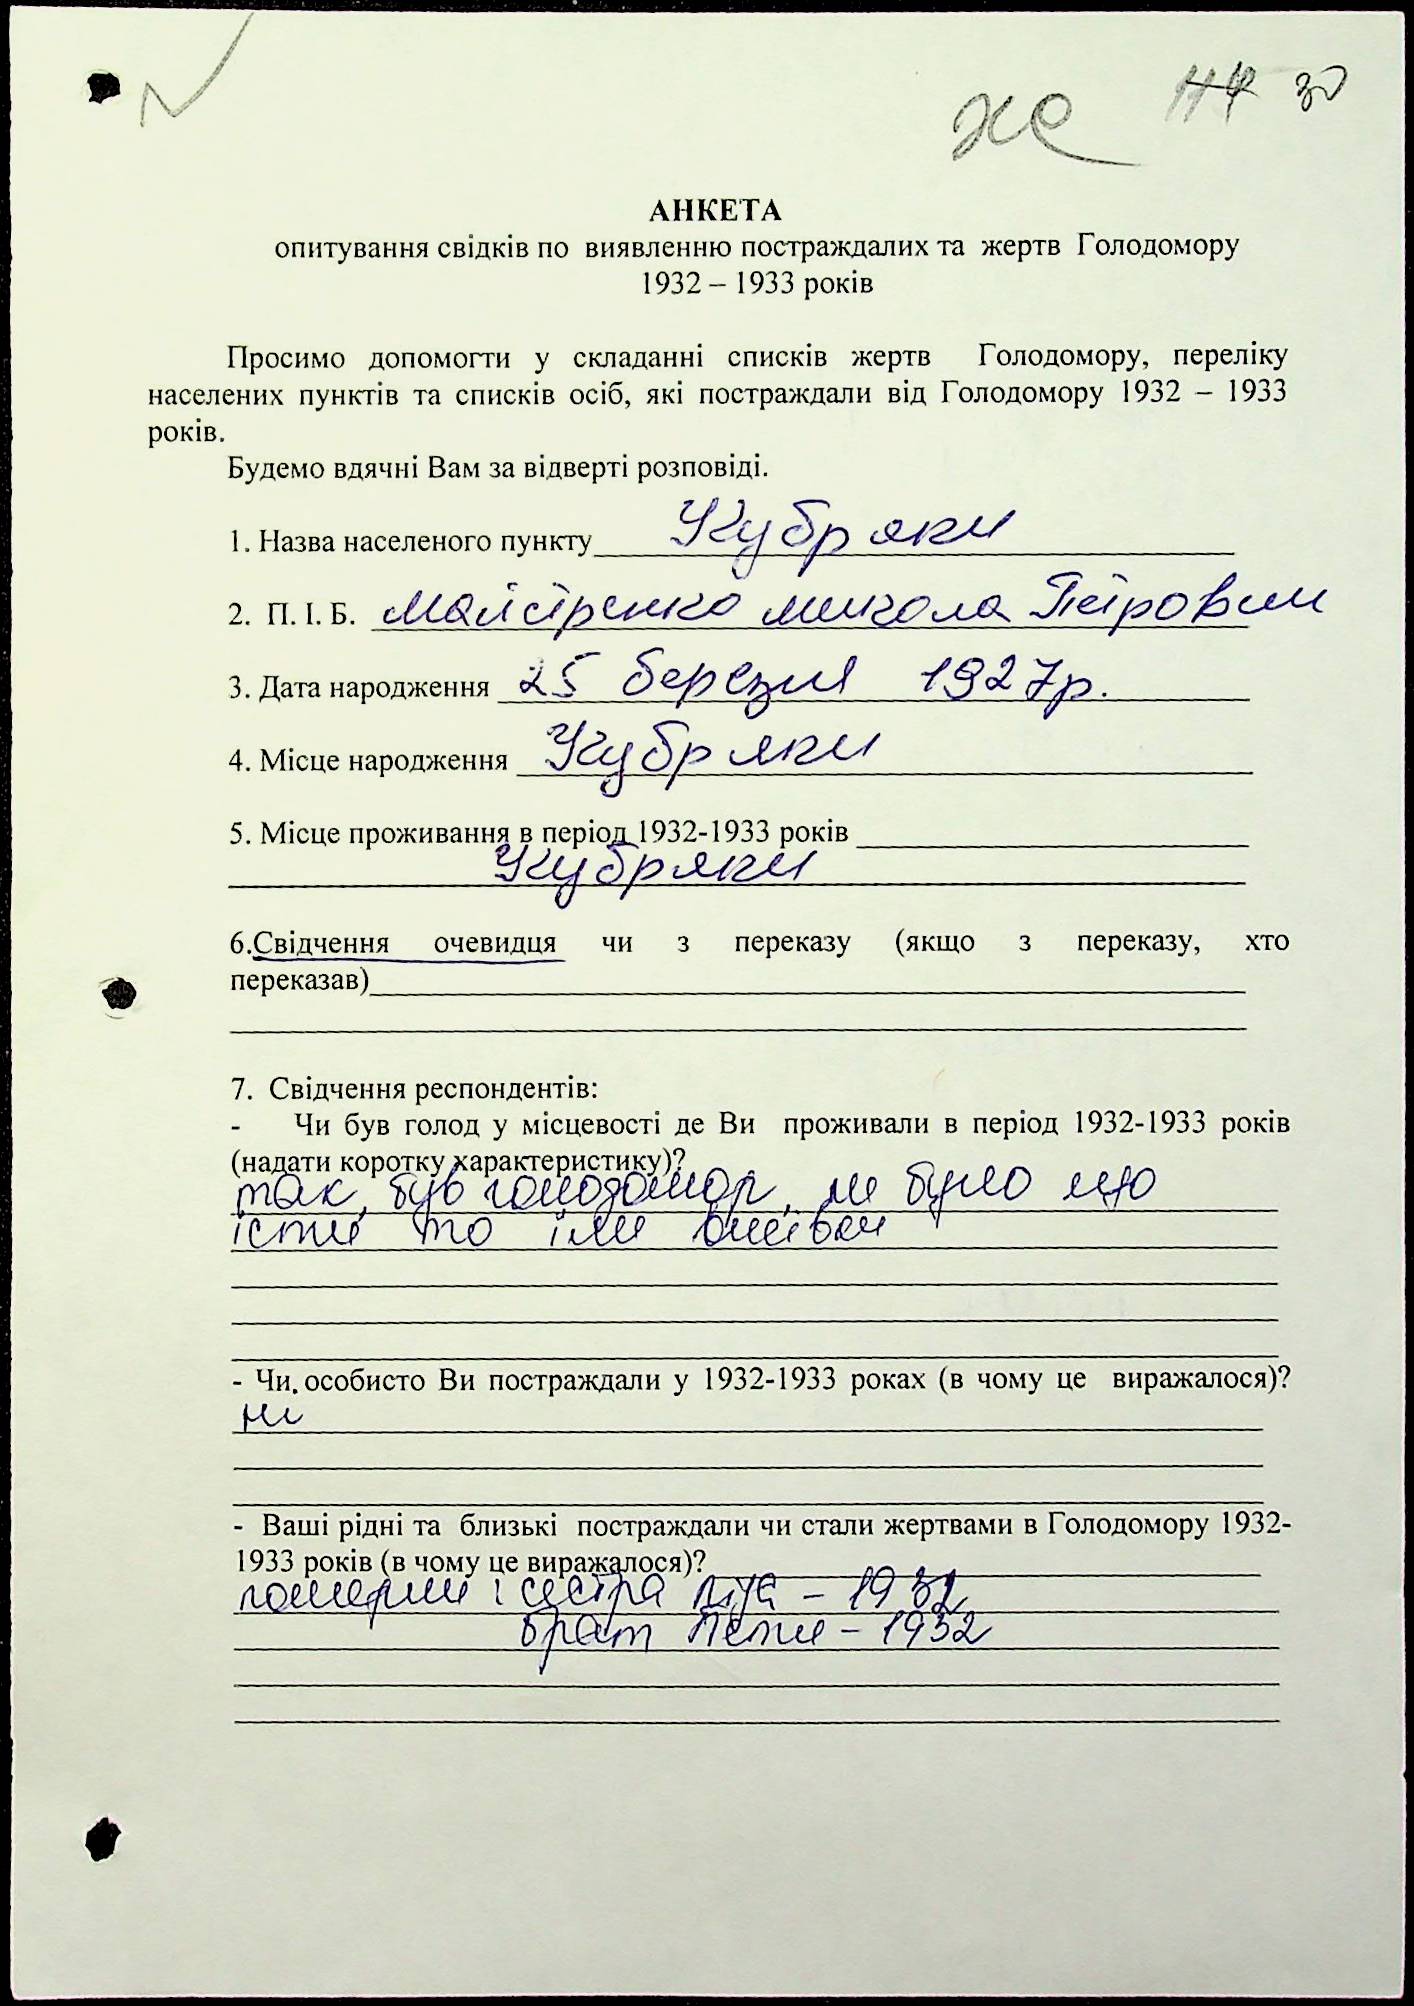 же 30
АНКЕТА
опитування свідків по виявленню постраждалих та жертв Голодомору
1932 – 1933 років
Просимо допомогти у складанні списків жертв Голодомору, переліку
населених пунктів та списків осіб, які постраждали від Голодомору 1932 – 1933
років.
Будемо вдячні Вам за відверті розповіді.
1. Назва населеного пункту Кубряки
2. П. І. Б. Майстренко Микола Петрович
3. Дата народження 25 березня 1927р.
4. Місце народження Кубряки
5. Місце проживання в період 1932-1933 років
Кубряки
6.Свідчення очевидця чи з переказу (якщо з переказу, хто
переказав)
7. Свідчення респондентів:
- Чи був голод у місцевості де Ви проживали в період 1932-1933 років
(надати коротку характеристику)?
так, був голодомор, не було що
їсти то їли
- Чи особисто Ви постраждали у 1932-1933 роках (в чому це виражалося)?
ні
- Ваші рідні та близькі постраждали чи стали жертвами в Голодомору 1932-
1933 років (в чому це виражалося)?
померли і сестра – 1932
брат Петя – 1932